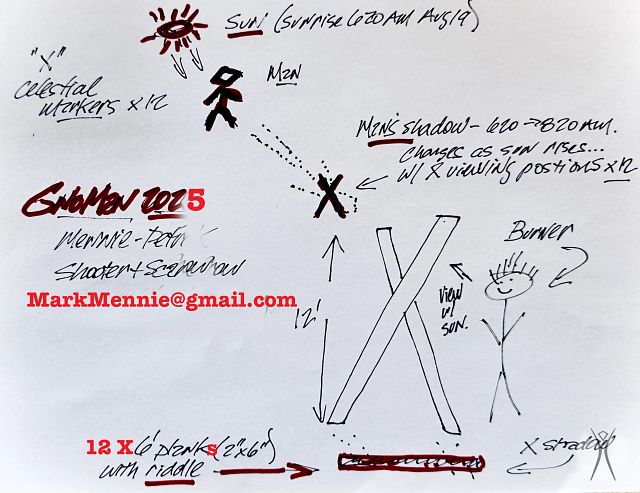 Sun (Sunrise 620 AM Aug 19)
"X"
Celestial
Markers x 12
Man
Man's shadow - 620 → 820 AM.
Changes as sun rises...
w/ X viewing postions x 12
GNOMEN 2025
Mennie -
Shooter +
MarkMennie@gmail.com
Burner
View
w/
sun.
12'
12 X 6' planks (2"x6")
with riddle
X shadow